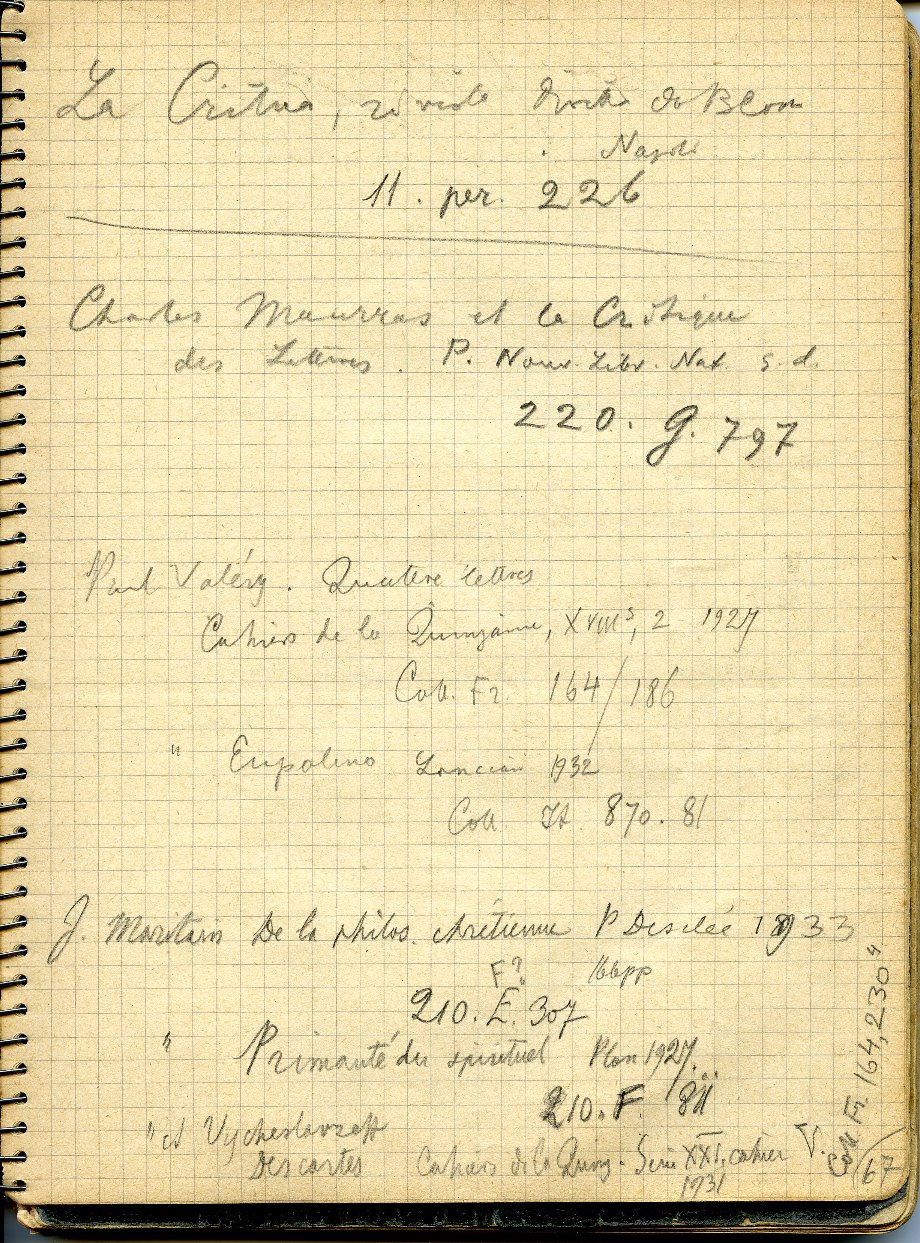 La Critica, rivista diretta da B Croce
Napoli
11. per. 226
Charles Maurras et la Critique
des Lettres. P. Nouv. Libr. Nat. s. d.
220. g. 797
Paul Valéry. Quatre lettres
Cahiers de la Quinzaine, XVIII s, 2 1927
Coll. Fr. 164/186
" Eupalino 1932
Coll. It. 870. 81
J. Maritain De la philos. chrétienne P Desclée 1933
F? 166pp
210. E. 307
" Primauté du spirituel Plon 1927.
210. F.
" et Vycheslavzeff
Descartes Cahiers de la Quinz. Série XXI, cahier V.
1931
Coll Fr. 164,230"
/67